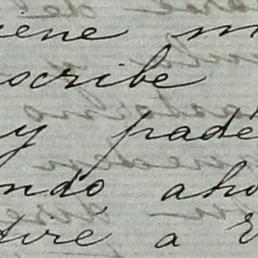 iene m
scribe
y padé
ndo aho
tire a